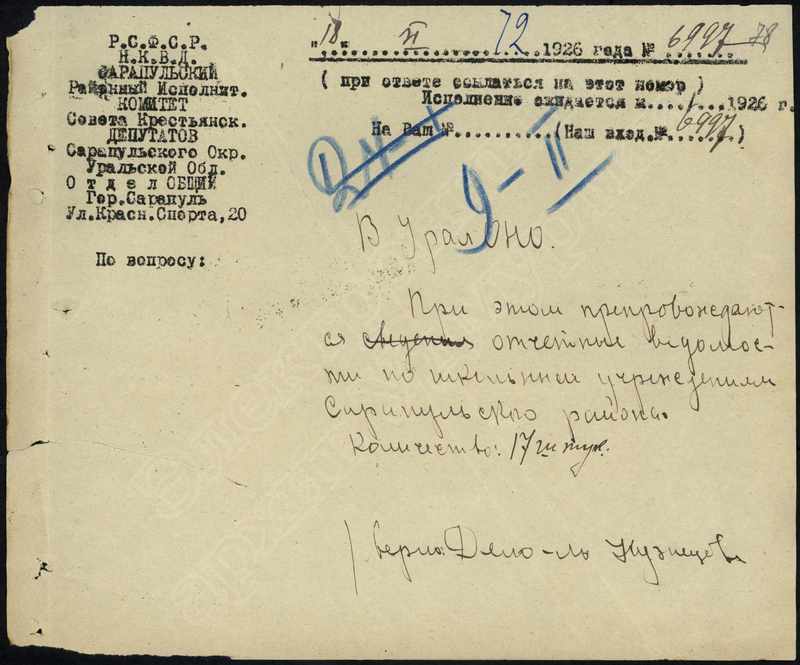 Р.С.Ф.С.Р.
Н.К.В.Д.
САРАПУЛЬСКИЙ
Районный Исполнит.
КОМИТЕТ
Совета Крестьянск.
ДЕПУТАТОВ
Сарапульского Окр.
Уральской Обл.
О т д е л ОБЩИЙ
Гор.Сарапуль
Ул.Красн.Спорта,20
По вопросу:
"18" XI 1926 года № 6997
72
78
( при ответе ссылаться на этот номер )
Исполнение ожидается к..../....1926 г.
На Ваш №...........(Наш вход.№ 6997)
9-II
В УралОНО.
При этом препровождают-
ся сведения отчетные ведомос-
ти по школьным учреждениям
Сарапульского района.
Количество: 17 штук.
верно: Дело-ль Кузнецов